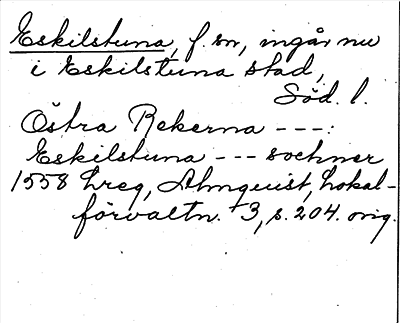 Eskilstuna, f. sn, ingår nu
i Eskilstuna stad,
Söd. l.
Östra Rekerna ---:
Eskilstuna --- sochner
1558 hreg, Almquist, Lokal-
förvaltn. 3, s. 204. orig.